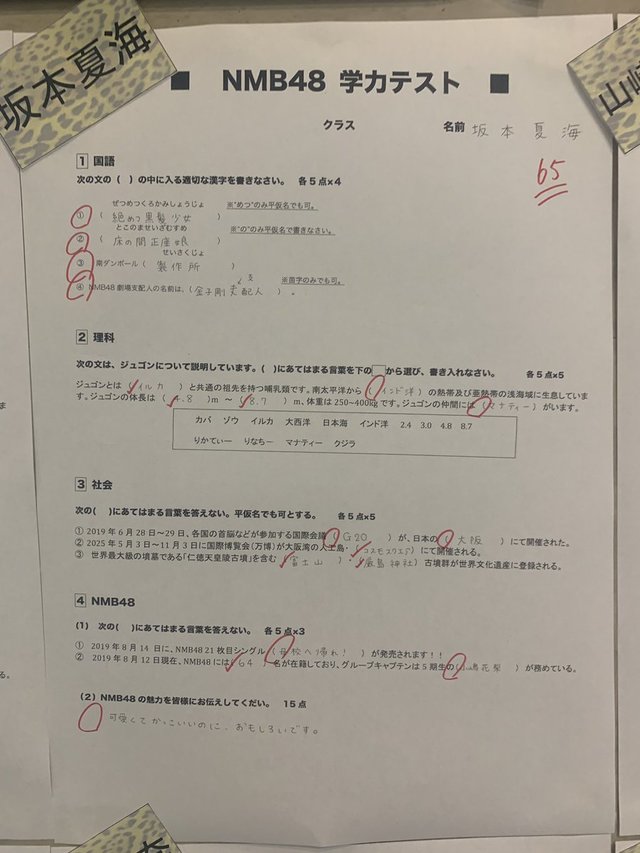 坂本夏海
山崎
■ NMB48 学力テスト ■
クラス 名前 坂本夏海
65
1 国語
次の文の( )の中に入る適切な漢字を書きなさい。 各5点×4
ぜつめつくろかみしょうじょ ※"めつ"のみ平仮名でも可。
① ( 絶めつ黒髪少女 )
とこのませいざむすめ ※"の"のみ平仮名で書きなさい。
② ( 床の間正座娘 )
せいさくじょ
③ 南ダンボール( 製作所 )
支 ※苗字のみでも可。
④ NMB48劇場支配人の名前は、(金子剛支配人 )。
2 理科
次の文は、ジュゴンについて説明しています。( )にあてはまる言葉を下の□から選び、書き入れなさい。 各5点×5
ジュゴンとは( イルカ )と共通の祖先を持つ哺乳類です。南太平洋から( インド洋 )の熱帯及び亜熱帯の浅海域に生息していま
す。ジュゴンの体長は( 4.8 )m ～( 8.7 )m、体重は250~400kgです。ジュゴンの仲間には( マナティー )がいます。
カバ ゾウ イルカ 大西洋 日本海 インド洋 2.4 3.0 4.8 8.7
りかてぃー りなちー マナティー クジラ
3 社会
次の( )にあてはまる言葉を答えない。平仮名でも可とする。 各5点×5
① 2019年6月28日～29日、各国の首脳などが参加する国際会議( G20 )が、日本の( 大阪 )にて開催された。
② 2025年5月3日～11月3日に国際博覧会(万博)が大阪湾の人工島・(コスモスクエア)にて開催される。
③ 世界最大級の墳墓である「仁徳天皇陵古墳」を含む( 富士山 )・( 厳島神社 )古墳群が世界文化遺産に登録される。
4 NMB48
(1) 次の( )にあてはまる言葉を答えない。 各5点×3
① 2019年8月14日に、NMB48 21枚目シングル( 母校へ帰れ! )が発売されます!!
② 2019年8月12日現在、NMB48には( 64 )名が在籍しており、グループキャプテンは5期生の(小嶋花梨 )が務めている。
(2) NMB48の魅力を皆様にお伝えしてくだい。 15点
可愛くてかっこいいのに、おもしろいです。